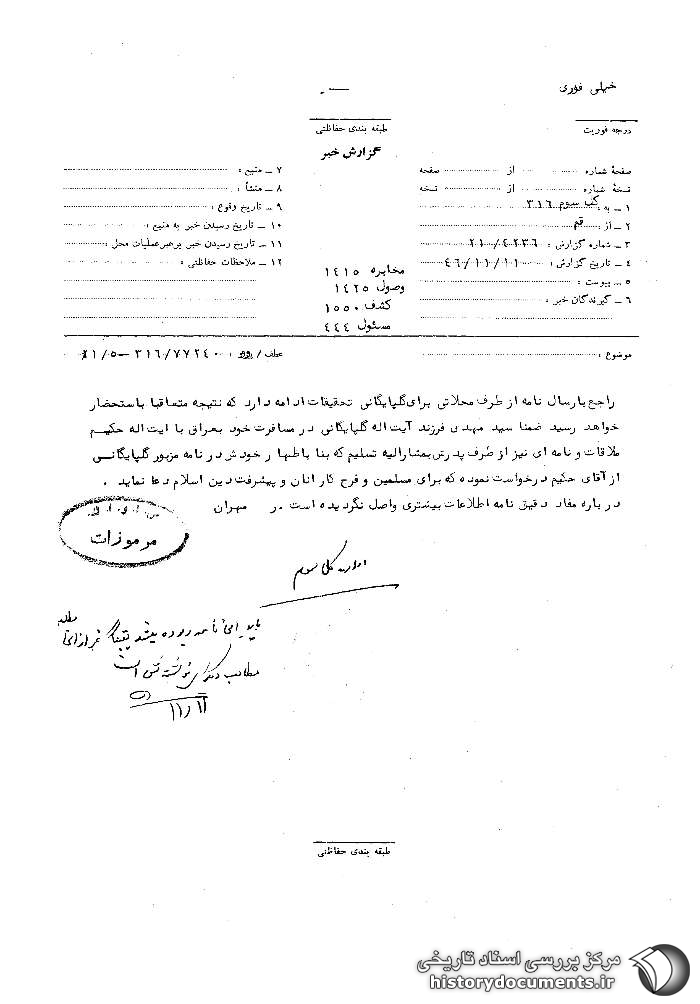 خیلی فوری
درجه فوریت
طبقه بندی حفاظتی
گزارش خبر
صفحهٔ شماره از صفحه
نسخهٔ شماره از نسخه
۱ ــ به: کب سوم ۳۱۶
۲ ــ از: قم
۳ ــ شماره گزارش: ۲۱/۴۲۳۶
۴ ــ تاریخ گزارش: ۴۶/۱۱/۱۰
۵ ــ پیوست:
۶ ــ گیرندگان خبر:
۷ ــ منبع:
۸ ــ منشأ:
۹ ــ تاریخ وقوع:
۱۰ ــ تاریخ رسیدن خبر به منبع:
۱۱ ــ تاریخ رسیدن خبر برهبر عملیات محل:
۱۲ ــ ملاحظات حفاظتی:
مخابره ۱۴۱۵
وصول ۱۴۲۵
کشف ۱۵۵۰
مسئول ۴۴۴
موضوع:
عطف / پیرو: ۳۱۶/۷۷۲۴۰
راجع بارسال نامه از طرف محلاتی برای گلپایگانی تحقیقات ادامه دارد که نتیجه متعاقبا باستحضار
خواهد رسید ضمنا سید مهدی فرزند آیت اله گلپایگانی در مسافرت خود بعراق با ایت اله حکیم
ملاقات و نامه ای نیز از طرف پدرش بمشارالیه تسلیم که بنا باظهار خودش در نامه مزبور گلپایگانی
از آقای حکیم درخواست نموده که برای مسلمین و فرج کار انان و پیشرفت دین اسلام دعا نماید .
درباره مفاد دقیق نامه اطلاعات بیشتری واصل نگردیده است مهران
مرموزات
اداره کل سوم
باید این نامه ربوده میشد غیر از این
مطالب دیگری نوشته است
۱۱/۱۱
طبقه بندی حفاظتی
مرکز بررسی اسناد تاریخی
historydocuments.ir